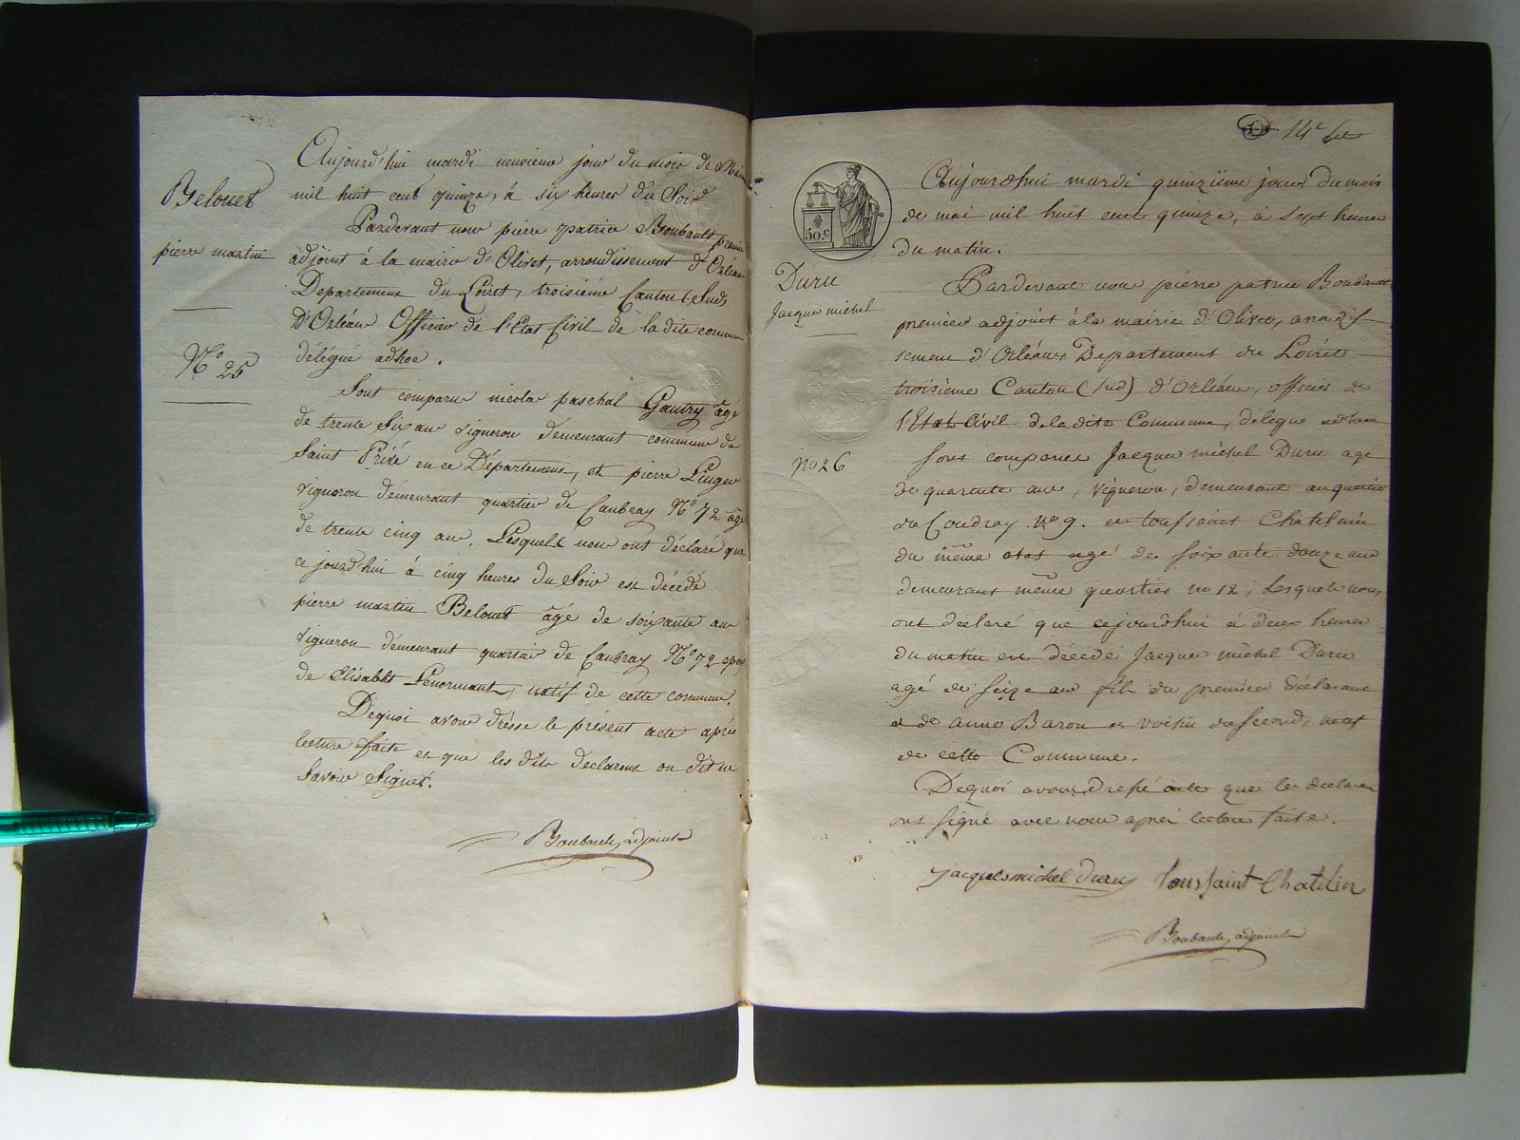 Belouet
pierre martin
N.o 25
Aujourd'hui mardi neuvieme jour du mois de Mai
mil huit cent quinze, à six heures du Soir
Pardevant nous pierre patrice Boubault premier
adjoint à la mairie d'Olivet, arrondissement d'Orléans
Departement du Loiret, troisième Canton (Sud)
D'Orléans Officier de l'Etat Civil de la dite commune
délégué adhoc.
Sont comparus nicolas paschal Gautry âgé
de trente Six ans vigneron demeurant commune de
Saint Privé en ce Département, et pierre
vigneron demeurant quartier de Caubray N.o 72 âgé
de trente cinq ans. Lesquels nous ont déclaré que
ce jourd'hui à cinq heures du Soir est décédé
pierre martin Belouet âgé de soixante ans
vigneron demeurant quartier de Caubray N.o 72 epoux
de Elisabet Lenormant, natif de cette commune.
Dequoi avons dressé le présent acte après
lecture faite et que les dits declarans on dit ne
Savoir Signer.
Boubault, adjoint
14e
50 c
Duru
Jacques michel
no 26
Aujourdhui mardi quinzieme jour du mois
de mai mil huit cent quinze, à Sept heures
du matin.
Pardevant nous pierre patrice Boubault
premier adjoint à la mairie d'Olivet, arondis-
sement d'Orléans Departement du Loiret
troisieme Canton (Sud) d'Orléans, officier de
l'Etat Civil de la dite Commune, delegue adhoc
Sont comparus Jacques michel Duru age
de quarante ans, vigneron, demeurant au quartier
du Coudray no 9. et toussaint Chatelain
du même etat agé de soixante douze ans
demeurant même quartier no 12, Lesquels nous
ont déclaré que cejourdhui à deux heures
du matin est décédé Jacques michel Duru
agé de seize ans fils du premier déclarant
et de anne Baron et voisin du second, natif
de cette Commune.
Dequoi avons dressé acte que les declarans
ont signé avec nous après lecture faite.
jacques michel duru toussaint Chatelin
Boubault, adjoint